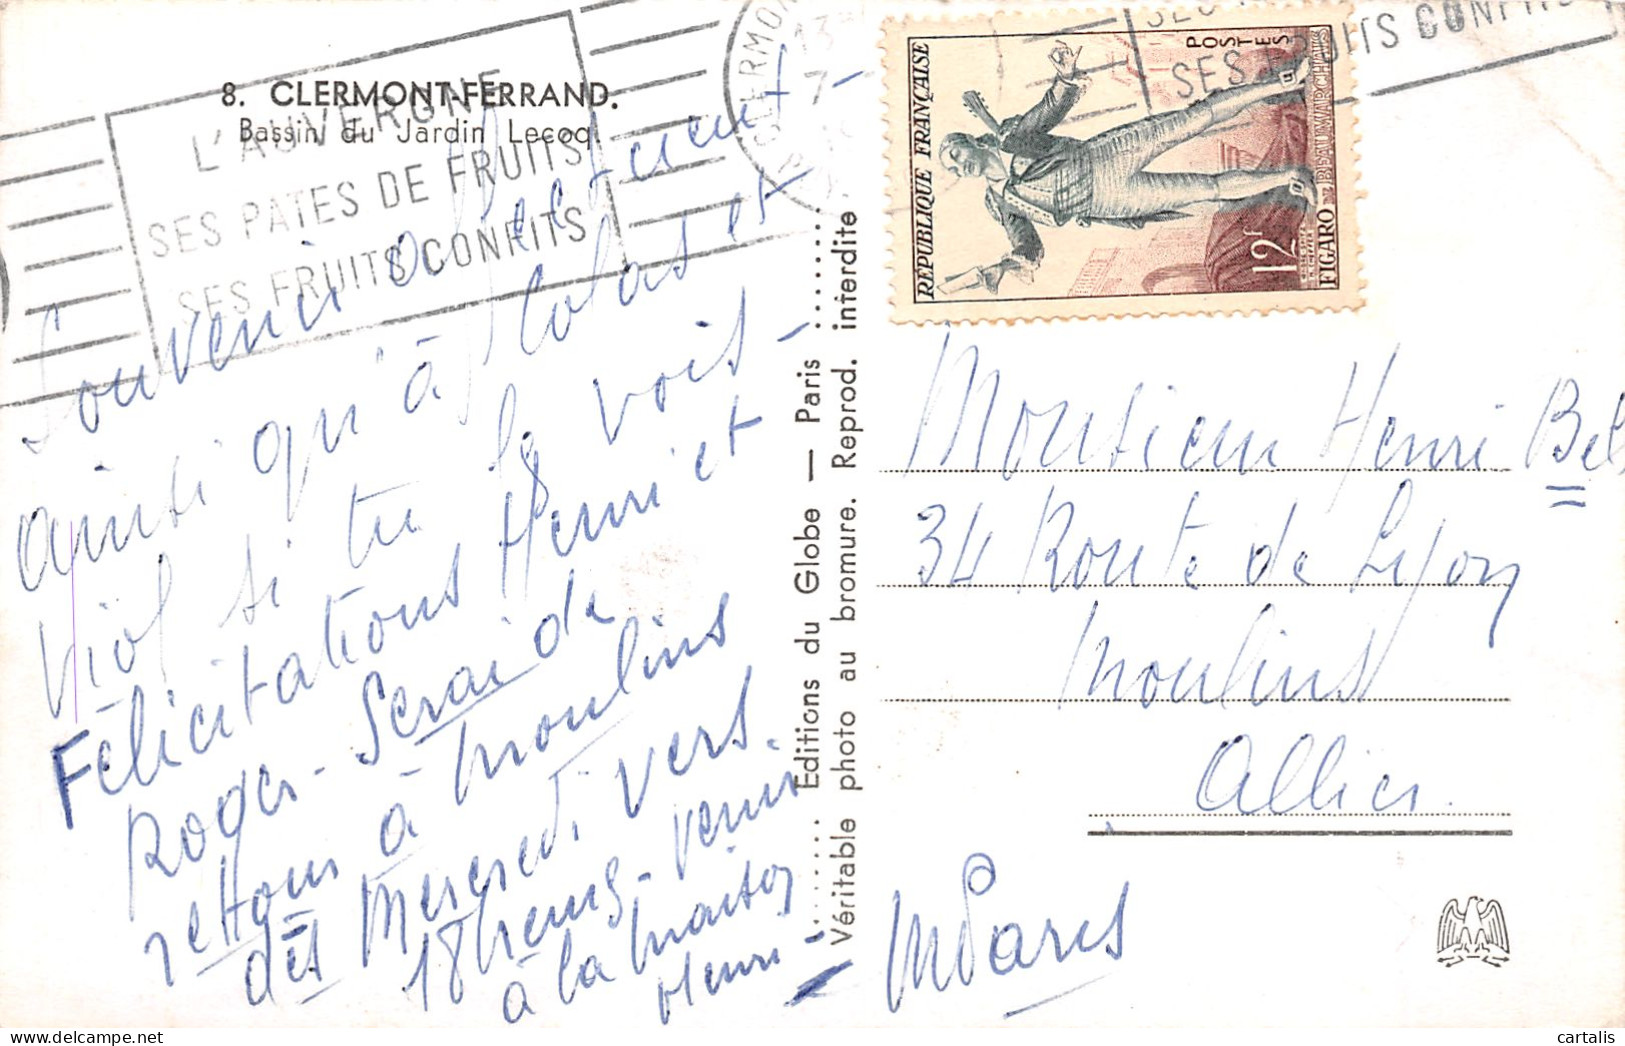 8. CLERMONT-FERRAND.
Bassin du Jardin Lecoq.
L'AUVERGNE
SES PATES DE FRUITS
SES FRUITS CONFITS
CLERMON
13
7
SES FRUITS CONFITS
POSTES
REPUBLIQUE FRANÇAISE
12f
FIGARO DE BEAUMARCHAIS
Souvenir affectueux
ainsi qu'à et
si tu le vois -
Félicitations Henri et
Roger - Serai de
retour à Moulins
dès Mercredi vers
18 heures - venir
à la maison
Henri -
Editions du Globe — Paris
Véritable photo au bromure. Reprod. interdite
Monsieur Henri Bel
34 Route de Lyon
Moulins
Allier.
cartalis